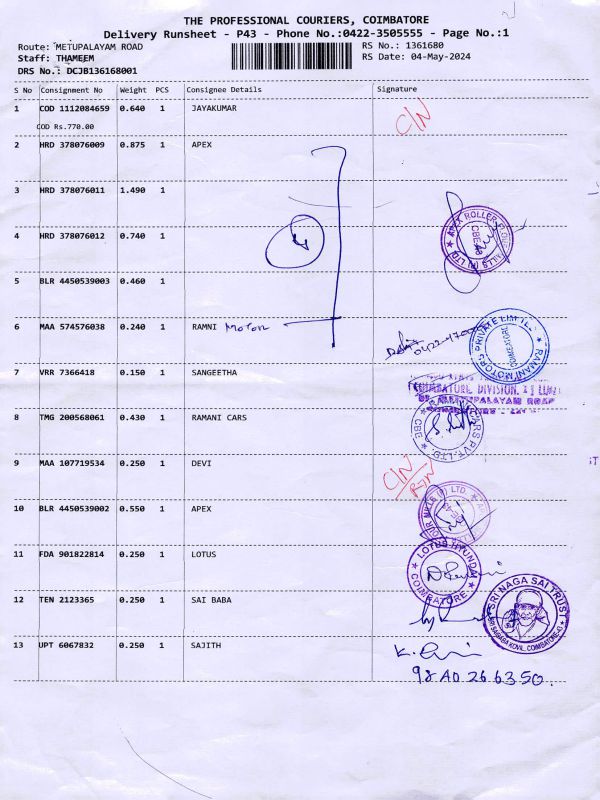 THE PROFESSIONAL COURIERS, COIMBATORE
Delivery Runsheet - P43 - Phone No.:0422-3505555 - Page No.:1
Route: METUPALAYAM ROAD RS No.: 1361680
Staff: THAMEEM RS Date: 04-May-2024
DRS No.: DCJB136168001
S No Consignment No Weight PCS Consignee Details Signature
1 COD 1112084659 0.640 1 JAYAKUMAR C/N
COD Rs.770.00
2 HRD 378076009 0.875 1 APEX
3 HRD 378076011 1.490 1
4 HRD 378076012 0.740 1
APEX ROLLER FLOUR MILLS (P) LTD. CBE-43
5 BLR 4450539003 0.460 1
6 MAA 574576038 0.240 1 RAMNI Motors
RAMANI MOTORS PRIVATE LIMITED COIMBATORE
7 VRR 7366418 0.150 1 SANGEETHA
COIMBATORE DIVISION
METTUPALAYAM ROAD
8 TMG 200568061 0.430 1 RAMANI CARS
RAMANI CARS PVT. LTD. CBE
9 MAA 107719534 0.250 1 DEVI C/N
RTN
10 BLR 4450539002 0.550 1 APEX
11 FDA 901822814 0.250 1 LOTUS
LOTUS HYUNDAI COIMBATORE
12 TEN 2123365 0.250 1 SAI BABA
SRI NAGA SAI TRUST
SRI SAIBABA KOVIL, COIMBATORE-43
13 UPT 6067832 0.250 1 SAJITH